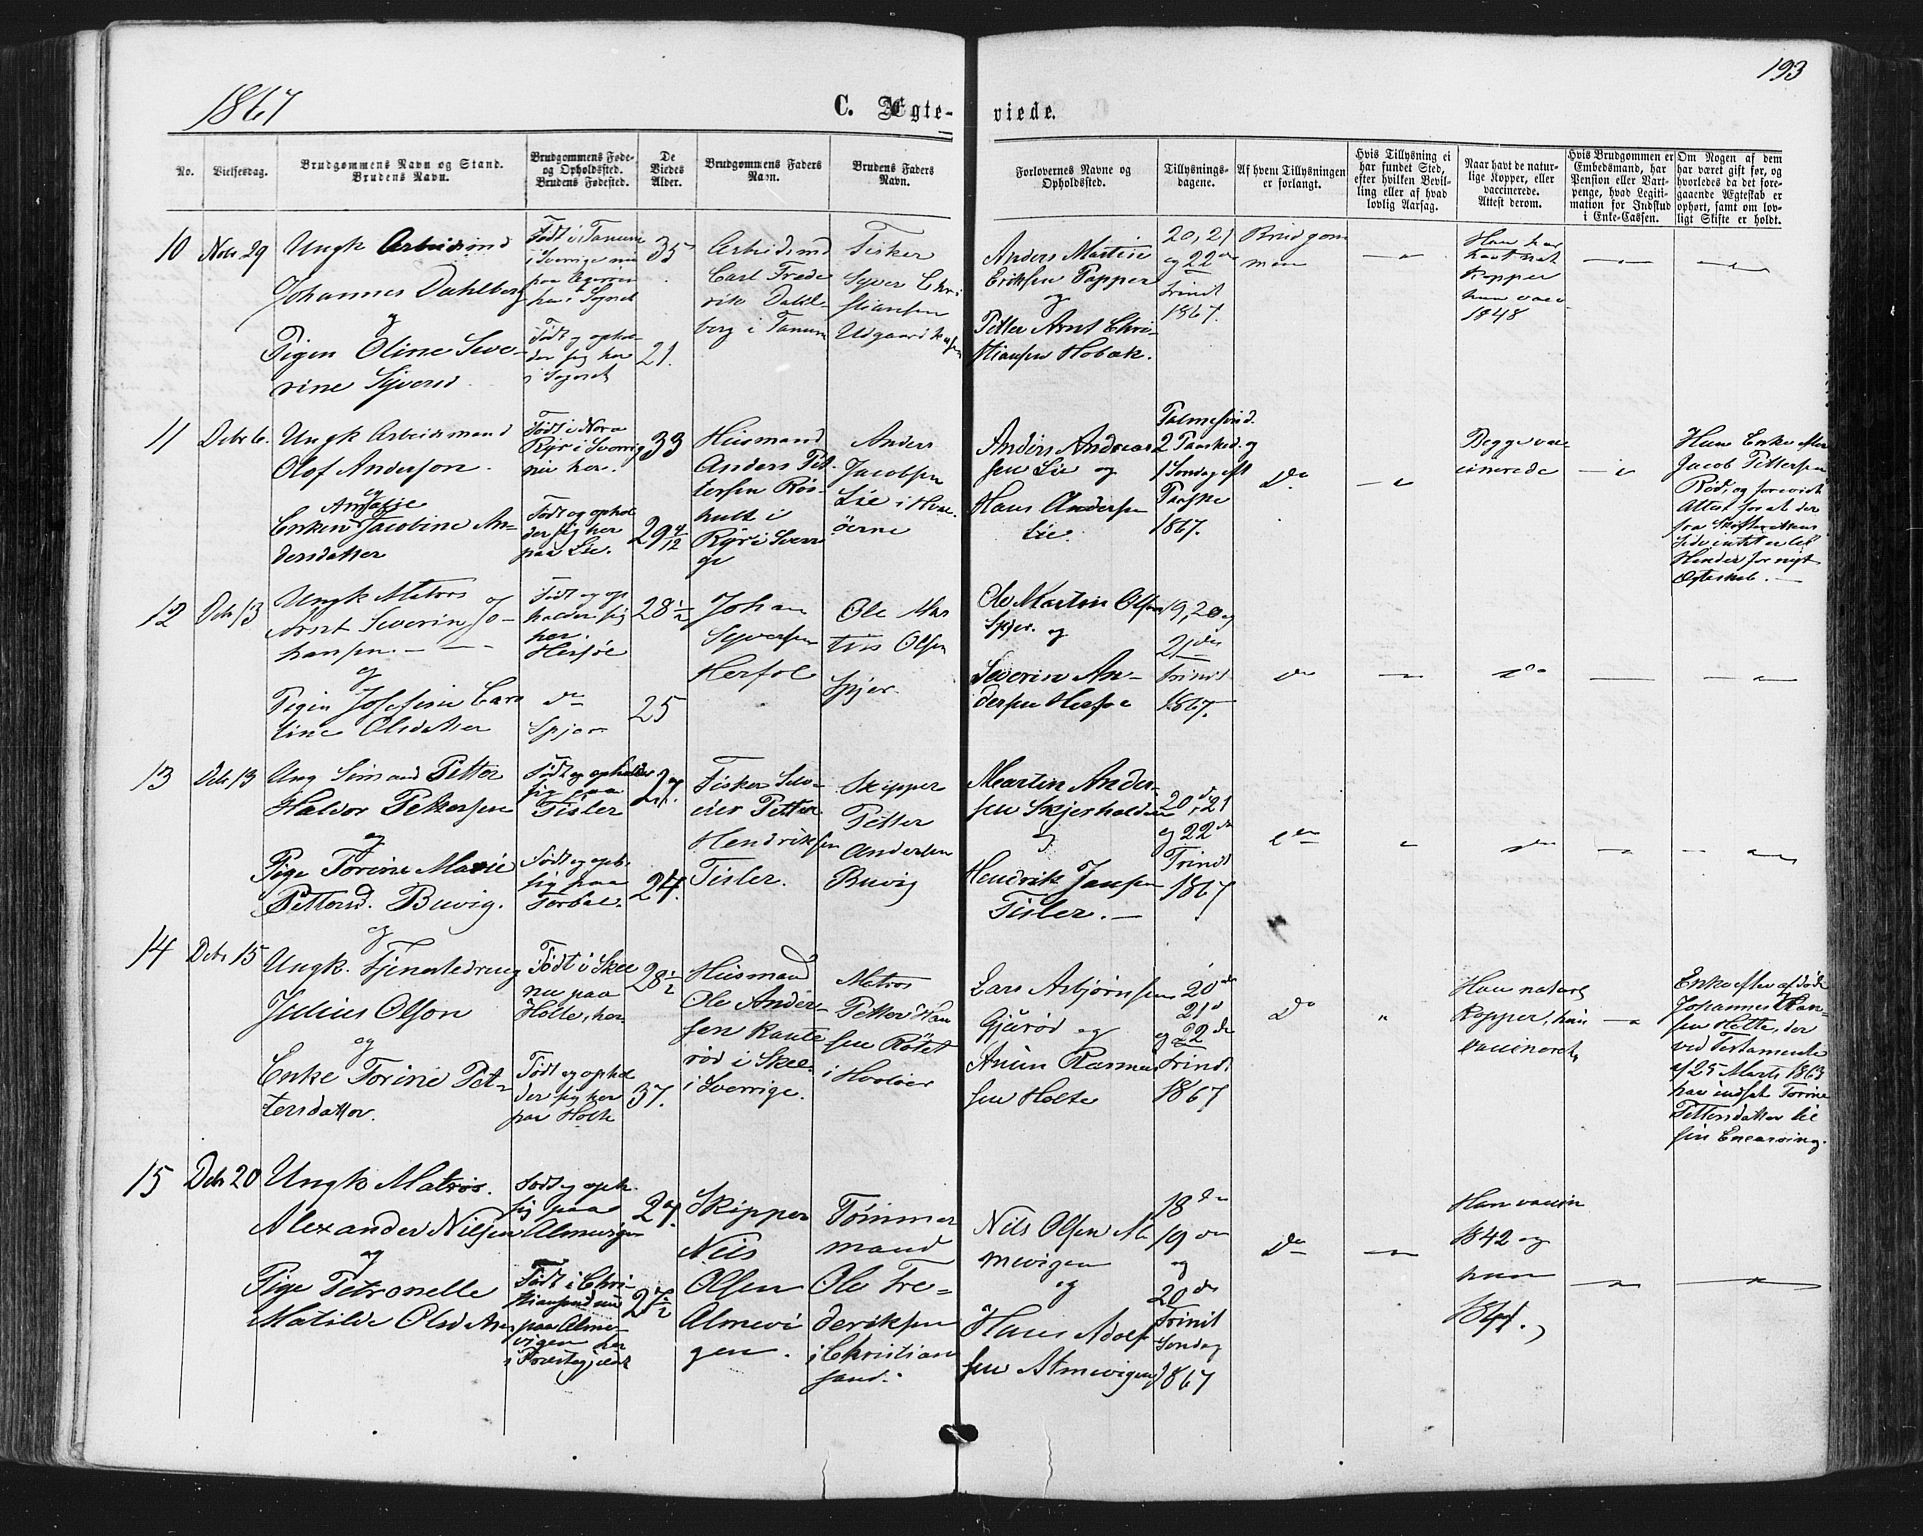 1867
193
C. Ægte-
viede.
No.
Vielsesdag.
Brudgommens Navn og Stand.
Brudens Navn.
Brudgommens Føde-
og Opholdssted.
Brudens Fødested.
De
Viedes
Alder.
Brudgommens Faders
Navn.
Brudens Faders
Navn.
Forlovernes Navne og
Opholdssted.
Tillysnings-
dagene.
Af hvem Tillysningen
er forlangt.
Hvis Tillysning ei
har fundet Sted,
efter hvilken Bevil-
ling eller af hvad
lovlig Aarsag.
Naar havt de natur-
lige Kopper, eller
vaccinerede.
Attest derom.
Hvis Brudgommen er
Embedsmand, har
Pension eller Vart-
penge, hvad Legiti-
mation for Indskud
i Enke-Cassen.
Om Nogen af dem
har været gift før, og
hvorledes da det fore-
gaaende Ægteskab er
ophørt, samt om lov-
ligt Skifte er holdt.
10
Nobr 29
Ungk Arbeidsmd
Johannes Dahlberg
og
Pigen Oline Seve-
rine Syversd
Født i Tanum
i Sverrige nu
paa
her i Sognet
Født og ophol-
der sig her
i Sognet
35
21.
Arbeidsmd
Carl Frede
rik Dahl-
berg i Tanum
Fisker
Syver Chri
stiansen
Anders Martin
Eriksen Papper
og
Petter Arnt Chri-
stiansen Hobæk.
20, 21
og 22de
Trinit
1867.
Brudgom
men
Han har
havt nat
Kopper
hun vacc
1848
11
Debr 6.
Ungk Arbeidsmand
Olof Anderson.
og
Amalie
Enken Jacobine An-
dersdatter
Født i Nora
Ryr i Sverrig
nu her.
Født og ophol
der sig her
paa Lie.
33
29 4/12
Huusmand
Anders Pet-
tersen Rös-
hult i
Ryr i Sverri
ge
Anders
Jacobsen
Lie i Hval-
öerne
Anders Andreas
sen Lie og
Hans Andersen
Lie.
Palmesønd.
2 Paasked. og
1 Søndag eft
Paaske
1867.
Do
Begge vac
cinerede
Hun Enke efter
Jacob Pettersen
Rød, og forevist
Attest for at der
fra Skifterettens
Side intet er til
Hinder for nyt
Ægteskab.
12
Debr 13
Ungk Matros
Arnt Severin Jo-
hansen.
og
Pigen Josefine Caro
line Olsdatter
Født og op
holder sig
her.
Herføl
do
Spjær
28 1/2
25
Johan
Syversen
Herføl
Ole Mar
tius Olsen
Spjær.
Ole Martin Olsen
Spjær. og
Severin An-
dersen Herføl
19, 20 og
21de
Trinit
1867.
do
do
13
Debr 13
Ung Sømand Petter
Haldor Pettersen
og
Pige Torine Marie
Pettersd. Buvig.
Født og opholder
sig paa
Tisler
Født og oph.
sig paa
Torbal.
27.
24.
Fisker
Petter
Hendriksen
Tisler.
Skipper
Petter
Andersen
Buvig
Martin Ander-
sen Skjerhalden
og
Hendrik Jansen
Tisler.
20de, 21
og 22de
Trinit
1867
do
do
14
Debr 15
og
Ungk. Tjenestedreng
Julius Olson
og
Enke Torine Pet-
tersdatter.
Født i Skee
nu paa
Holte, her
Født og ophol
der sig her
paa Holte
28 1/2
37.
Huusmand
Ole Ander-
sen Rante
rød i Skee
i Sverrige.
Matros
Petter Han
sen Rødet
i Hvaløer
Lars Asbjørnsen
Gjürød og
Anun Rasmus
sen Holte
20de
21d
og 22de
Trinit
1867
Do
Han naturl
Kopper, hun
vaccineret
Enke efter afdøde
Johannes Han-
sen Holte, der
ved Testamente
af 25 Marts 1863
har indsat Torine
Pettersdatter til
sin Enearving.
15
Debr 20
Ungk Matros.
Alexander Nilsen
og
Pige Petronelle
Matilde Olsdatter
Født og oph.
sig paa
Almevigen
Født i Chri-
stiansund nu
paa Alme-
vigen her
i Præstegjeldet
27.
27 1/2
Skipper
Nils
Olsen
Almevi
gen.
Tømmer
mand
Ole Fre-
deriksen
i Christian
sund.
Nils Olsen Al
mevigen
og
Hans Adolf
sen Almevigen
18de
19de
og
20de
Trinit
Søndag
1867
Do
Han vaccin
1842 og
hun